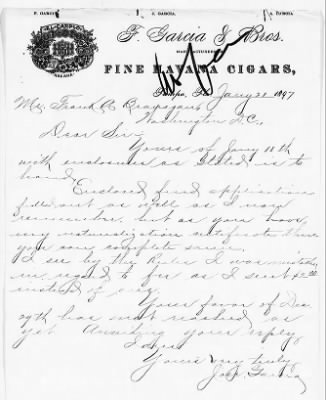 F. GARCIA J. GARCIA. A. GARCIA
F. Garcia & Bros.
MANUFACTURERS
FINE HAVANA CIGARS,
Jany 20 1897
Mr. Frank A.
Washington D.C.,
Dear Sir:-
Yours of Jany 18th
with enclosures as stated is to
hand.
Enclosed find application
filled out as well as I now
remember, but as you have
my naturalization certificate there
you can complete same.
I see by the Rules I was mistaken
in regard to fee as I sent $2.00
instead of one.
Your favor of Dec
29th has not reached us
yet Awaiting your reply,
I am
Yours very truly,
Garcia